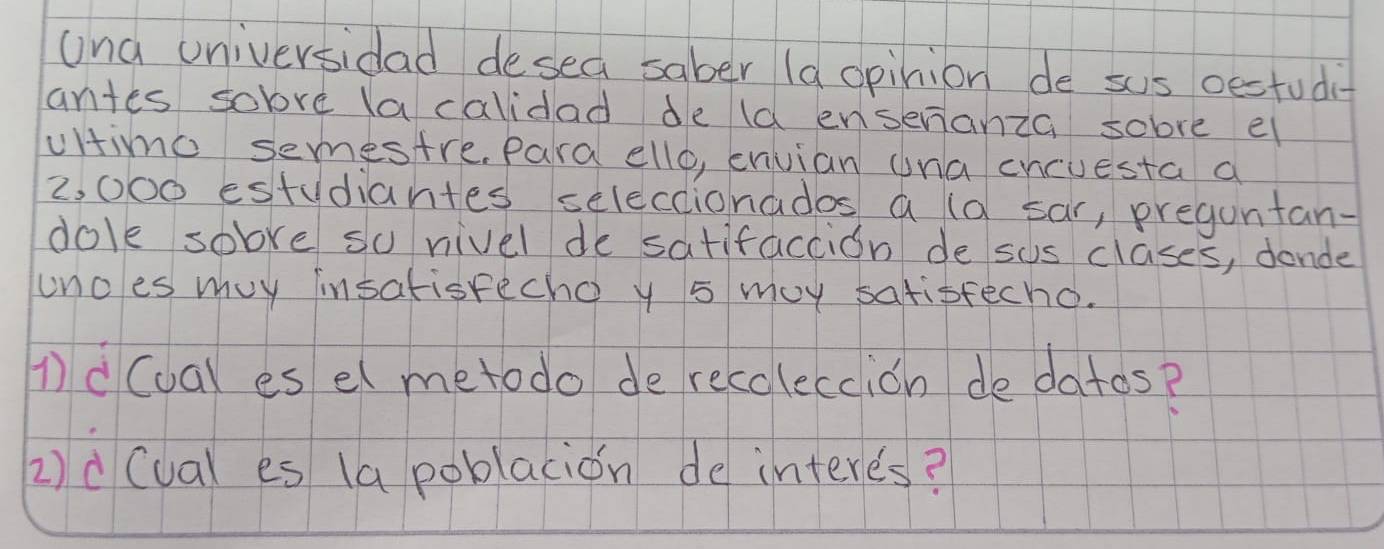 Una universidad desea saber la opinion de sus oestudi-
antes sobre la calidad de la enseñanza sobre el
ultimo semestre. Para ello, envian una encuesta a
2,000 estudiantes seleccionados a la sar, preguntan-
dole sobre su nivel de satifacción de sus clases, donde
uno es muy insatisfecho y 5 muy satisfecho.
1) ¿Cual es el metodo de recolección de datos?
2) ¿Cual es la población de interés?